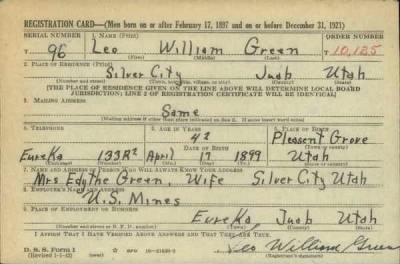 REGISTRATION CARD—(Men born on or after February 17, 1897 and on or before December 31, 1921)
SERIAL NUMBER 1. NAME (Print) ORDER NUMBER
T 96 Leo William Green T 10,125
(First) (Middle) (Last)
2. PLACE OF RESIDENCE (Print)
Silver City Juab Utah
(Number and street) (Town, township, village, or city) (County) (State)
[THE PLACE OF RESIDENCE GIVEN ON THE LINE ABOVE WILL DETERMINE LOCAL BOARD
JURISDICTION; LINE 2 OF REGISTRATION CERTIFICATE WILL BE IDENTICAL]
3. MAILING ADDRESS
Same
[Mailing address if other than place indicated on line 2. If same insert word same]
4. TELEPHONE 5. AGE IN YEARS 6. PLACE OF BIRTH
42 Pleasent Grove
DATE OF BIRTH
Eureka 133R2 April 17 1899 Utah
7. NAME AND ADDRESS OF PERSON WHO WILL ALWAYS KNOW YOUR ADDRESS
Mrs Edythe Green, Wife Silver City Utah
8. EMPLOYER'S NAME AND ADDRESS
U.S. Mines
9. PLACE OF EMPLOYMENT OR BUSINESS
Eureka, Juab Utah
(Number and street or R. F. D. number) (Town) (County) (State)
I AFFIRM THAT I HAVE VERIFIED ABOVE ANSWERS AND THAT THEY ARE TRUE.
D. S. S. Form 1
(Revised 1-1-42) (over) Leo William Green
(Registrant's signature)